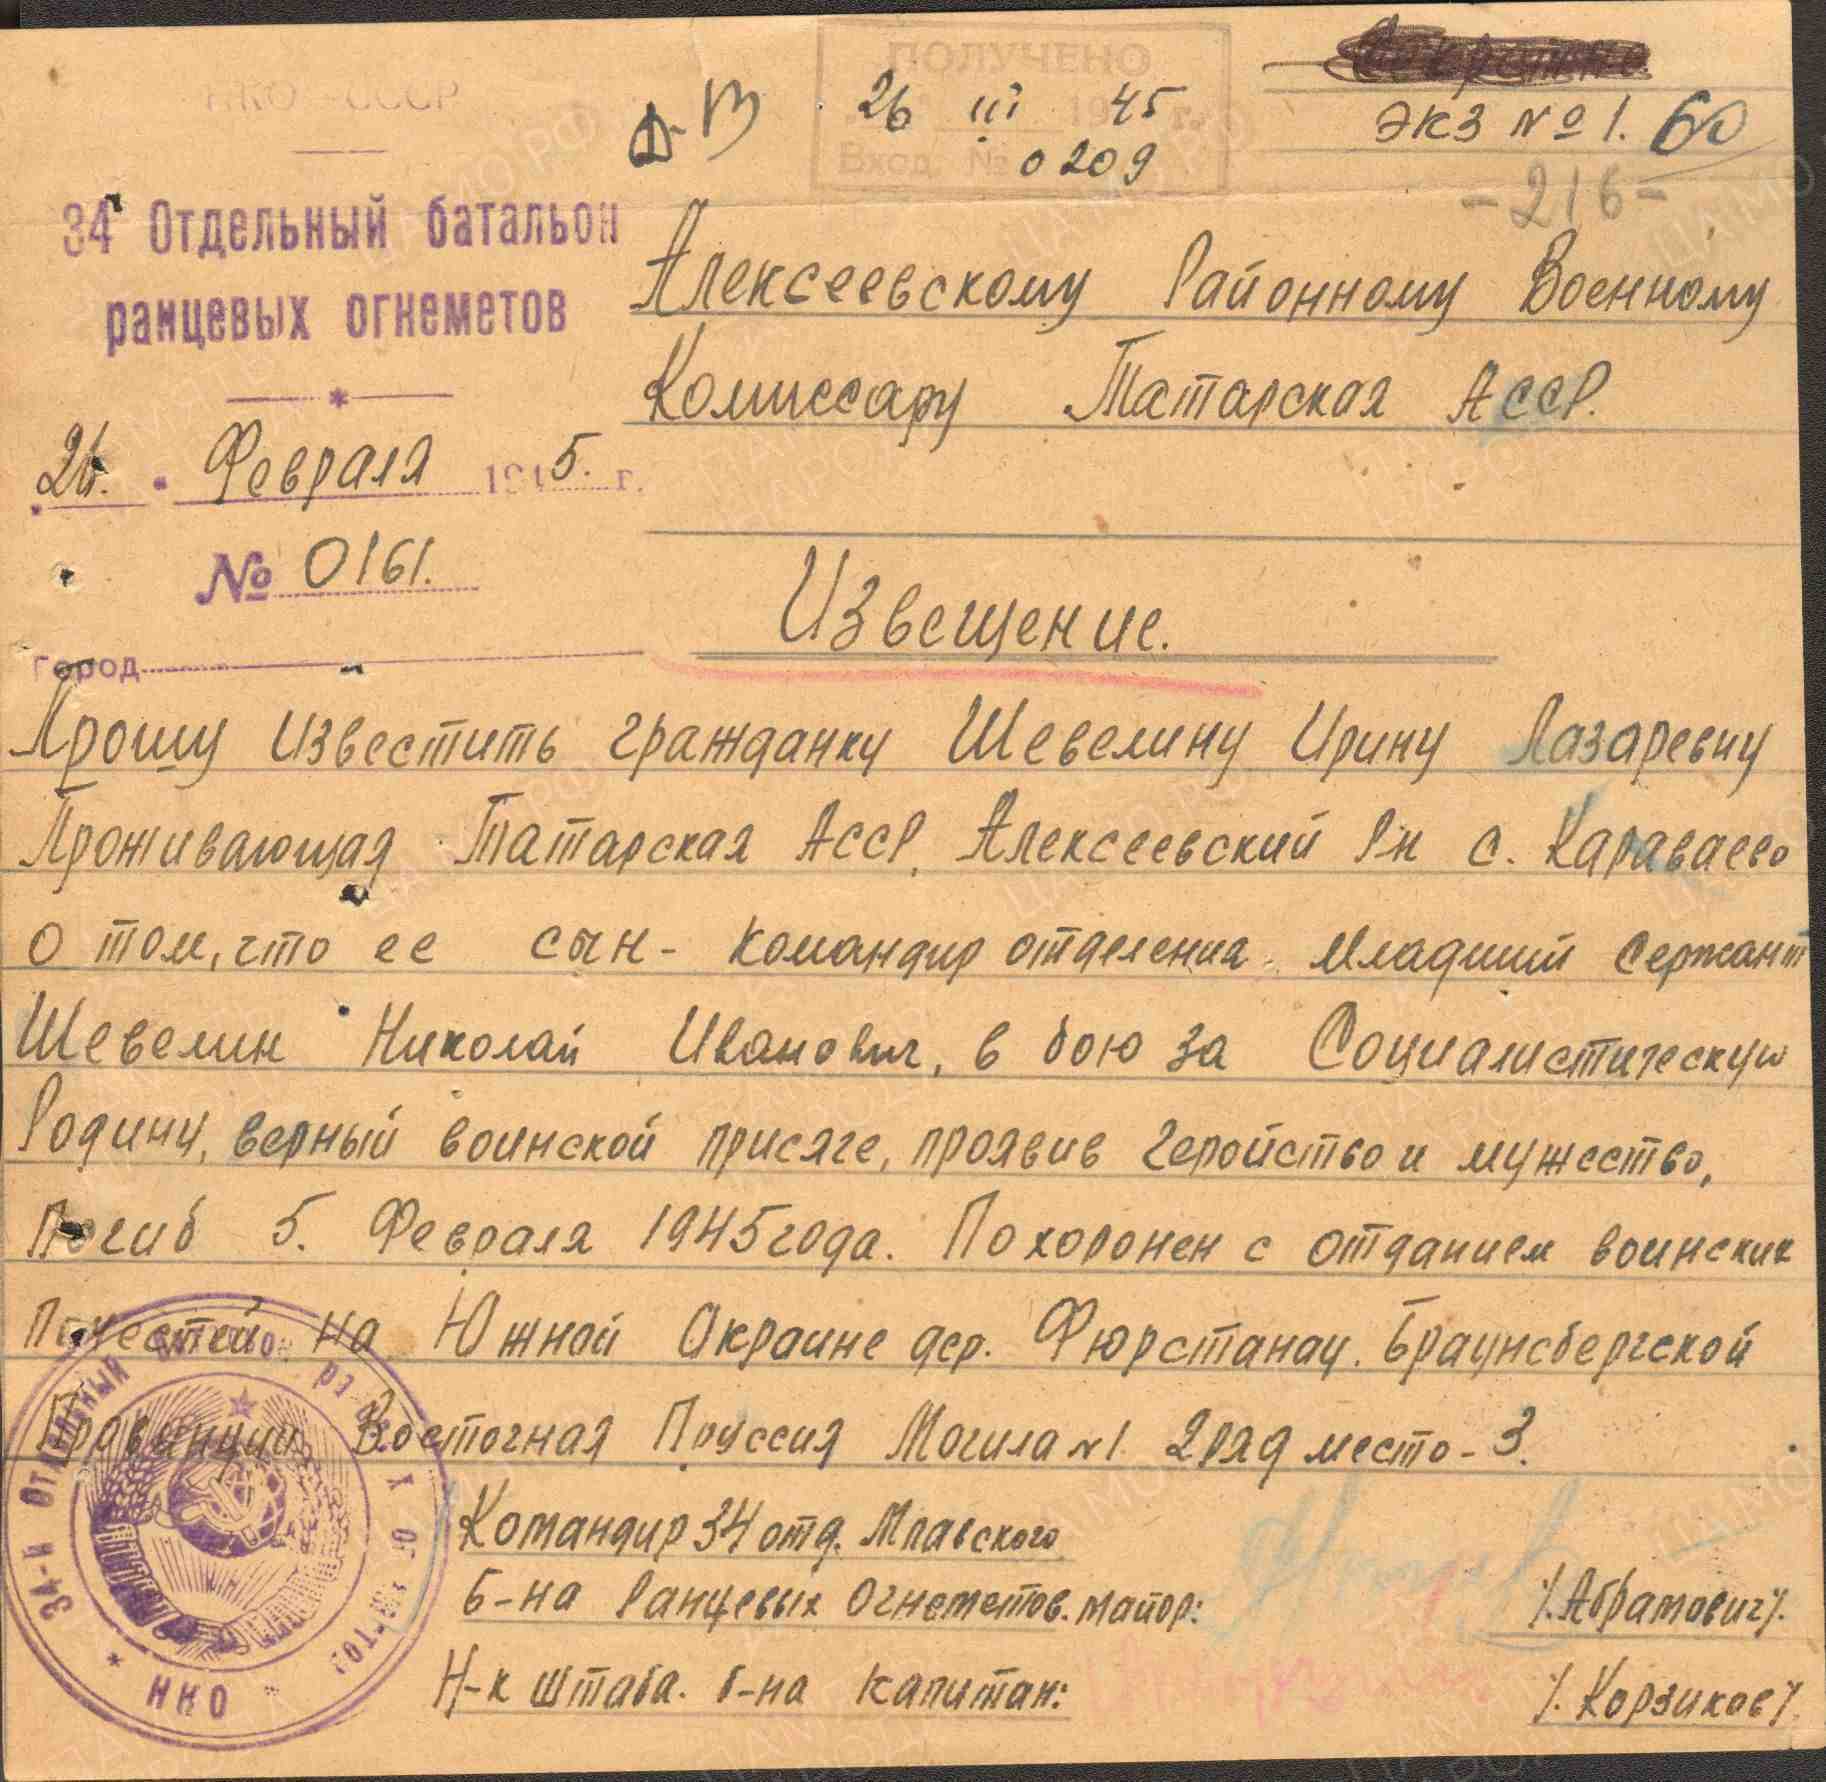 НКО - СССР
34 Отдельный батальон
ранцевых огнеметов
26. Февраля 1945. г.
№ 0161.
город
ПОЛУЧЕНО
26 III 1945 г.
Вход. № 0209
экз № 1. 60
-216-
Алексеевскому Районному Военному
Комиссару Татарская АССР.
Извещение.
Прошу известить гражданку Шевелину Ирину Лазаревну
Проживающая Татарская АССР, Алексеевский Рн с. Караваево
о том, что ее сын - командир отделения младший сержант
Шевелин Николай Иванович, в бою за Социалистическую
Родину, верный воинской присяге, проявив геройство и мужество,
Погиб 5. Февраля 1945 года. Похоронен с отданием воинских
Почестей на Южной Окраине дер. Фюрстанау. Браунсбергской
Провинции Восточная Пруссия Могила №1 2 ряд место - 3.
Командир 34 отд. Млавского
б-на Ранцевых Огнеметов. майор: /.Абрамович/.
Н-к штаба. б-на капитан: /.Корзиков/.
34-й Отдельный батальон
* ОНН